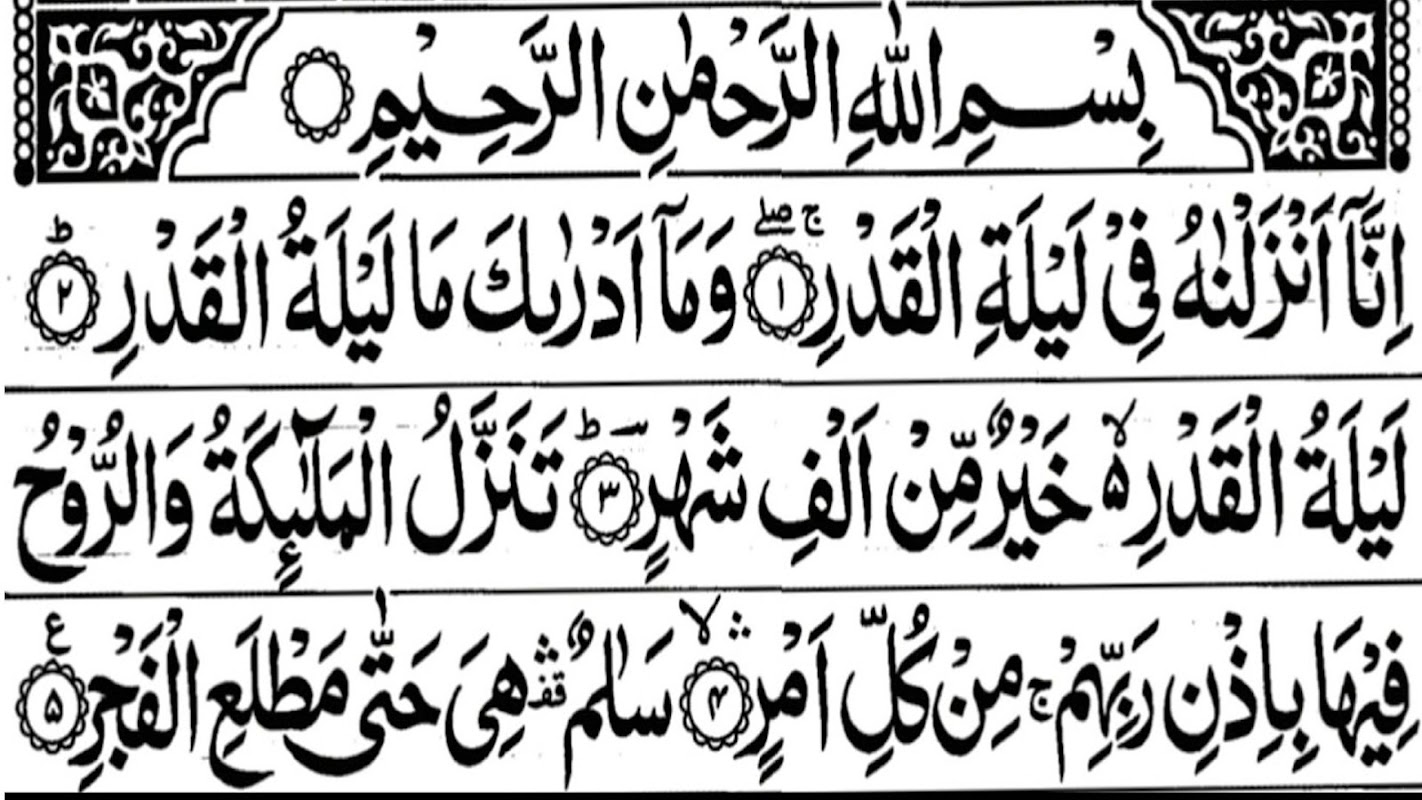 بِسْمِ اللّٰهِ الرَّحْمٰنِ الرَّحِيْمِ
اِنَّآ اَنْزَلْنٰهُ فِىْ لَيْلَةِ الْقَدْرِ ۚۖ ﴿۱﴾ وَمَآ اَدْرٰٮكَ مَا لَيْلَةُ الْقَدْرِ ؕ ﴿۲﴾
لَيْلَةُ الْقَدْرِ ۙ۵ خَيْرٌ مِّنْ اَلْفِ شَهْرٍ ؕ ﴿۳﴾ تَنَزَّلُ الْمَلٰٓٮِٕكَةُ وَالرُّوْحُ
فِيْهَا بِاِذْنِ رَبِّهِمْ ۚ مِنْ كُلِّ اَمْرٍ ۛۙ ﴿۴﴾ سَلٰمٌ ۛقف هِىَ حَتّٰى مَطْلَعِ الْفَجْرِ ﴿۵﴾ ع